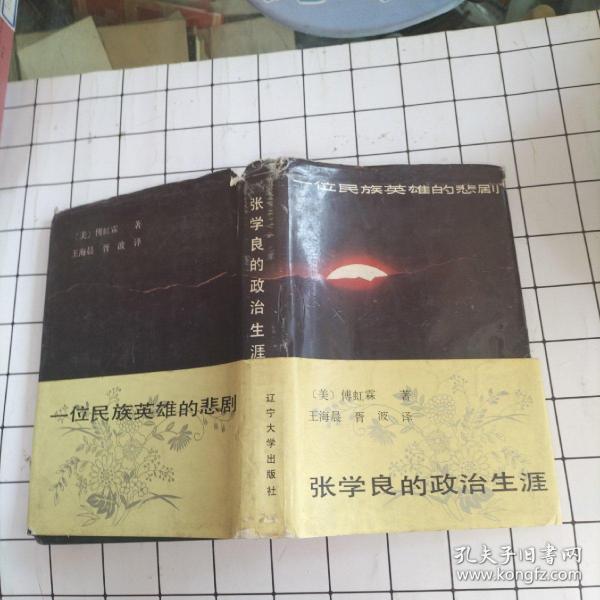 〔美〕傅虹霖 著
王海晨 胥波 译
一位民族英雄的悲剧
张学良的政治生涯
辽宁大学出版社
一位民族英雄的悲剧
〔美〕傅虹霖 著
王海晨 胥波 译
张学良的政治生涯
孔夫子旧书网
www.kongfz.com